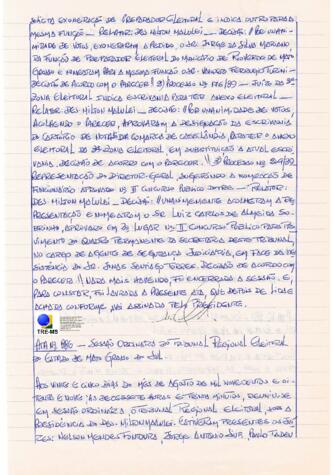 licita exoneração de Preparador Eleitoral e indica outro para a
mesma função — Relator: Des. Milton Malulei — Decisão: Por unani-
midade de votos, exoneraram a pedido, o Sr. Jorge da Silva Mariano
da função de Preparador Eleitoral do Município de
e nomearam para a mesma função
Decisão de acordo com o Parecer. Processo nº 176/89 — Juízo da 3ª
Zona Eleitoral indica escrivania para ter anexo eleitoral —
Relator: Des. Milton Malulei — Decisão: Por unanimidade de votos,
acolhendo o Parecer, aprovaram a designação da escrivania
do Cartório de Notas da Comarca de Cassilândia para ter o anexo
eleitoral da 3ª Zona Eleitoral, em substituição a atual escri-
vania. Decisão de acordo com o Parecer. 3) Processo nº
Representação do Diretor-Geral, sugerindo a nomeação de
funcionário aprovado no II Concurso Público — Relator:
Des. Milton Malulei — Decisão: Unanimemente acolheram a re-
presentação e nomearam o Sr. Luiz Carlos de Almeida So-
brinho, aprovado em 3º lugar no II Concurso Público para pro-
vimento do Quadro Permanente da Secretaria deste Tribunal,
no cargo de Agente de Segurança Judiciária, em face da de-
sistência do Sr. Decisão de acordo com
o Parecer. Nada mais havendo, foi encerrada a sessão. E,
para constar, foi lavrada a presente ata, que depois de lida e
achada conforme, vai assinada pelo Presidente.
TRE-MS
Ata nº — Sessão Ordinária do Tribunal Regional Eleitoral
do Estado de Mato Grosso do Sul.
Aos vinte e cinco dias do mês de agosto de mil novecentos e oi-
tenta e nove, às dezessete horas e trinta minutos, reuniu-se
em sessão ordinária, o Tribunal Regional Eleitoral, sob a
Presidência do Des. Milton Malulei. Estiveram presentes os Juí-
zes: Nelson Mendes Fontoura, Jorge Antonio Siufi, Paulo Tadeu